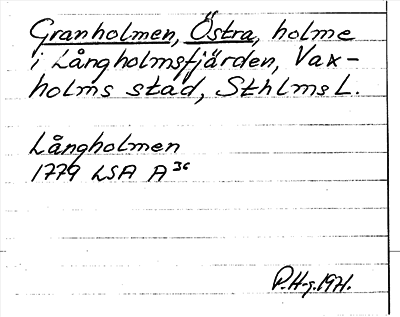 Granholmen, Östra, holme
i Långholmsfjärden, Vax-
holms stad, Sthlms L.
Långholmen
1779 LSA A 36
P.H-g. 1971.